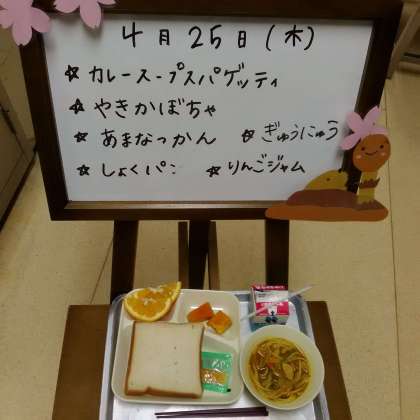 4月25日(木)
☆カレースープスパゲッティ
☆やきかぼちゃ
☆あまなつかん ☆ぎゅうにゅう
☆しょくパン ☆りんごジャム